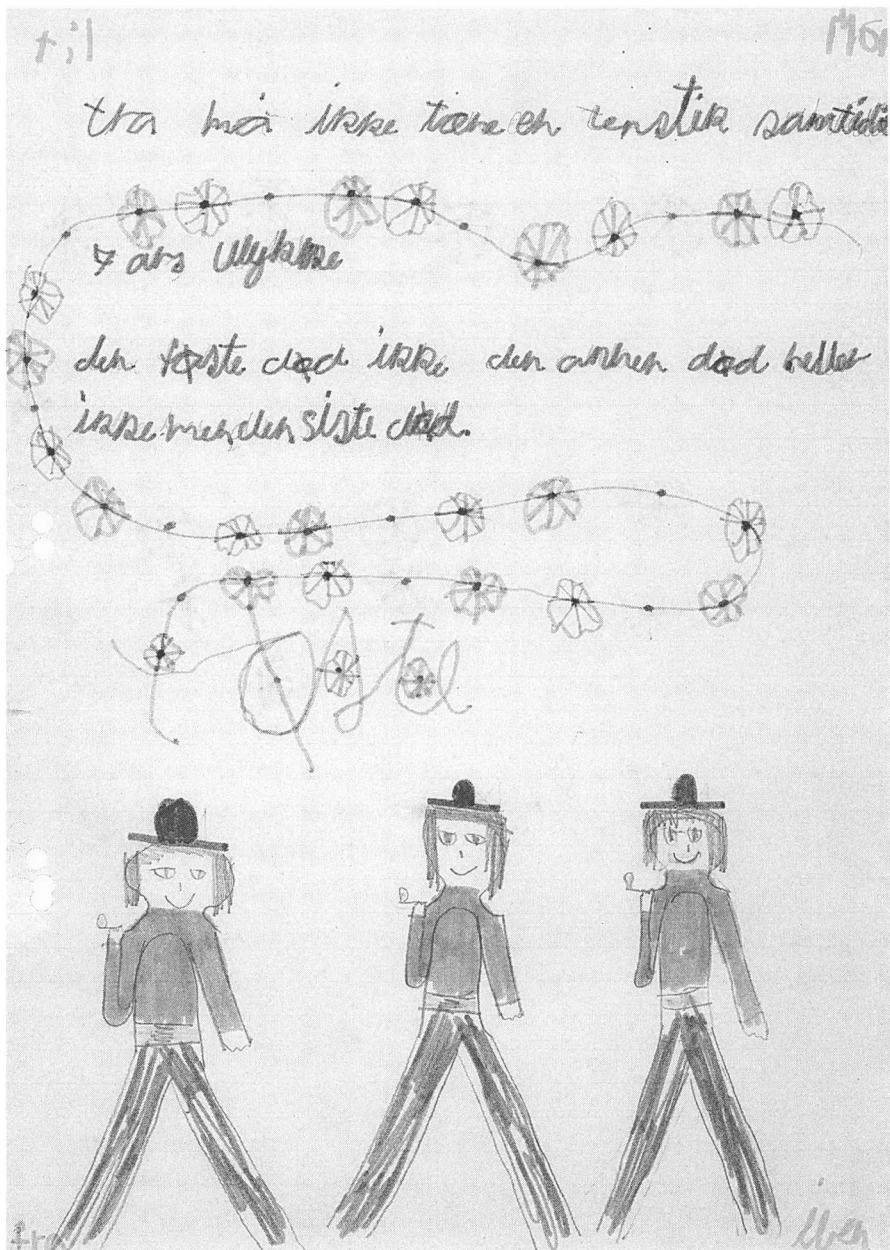 til Mor
tra må ikke tæne en tenstik samtidi
7 års Ulykke
den føste død ikke den annen død heller
ikke men den siste død.
fra